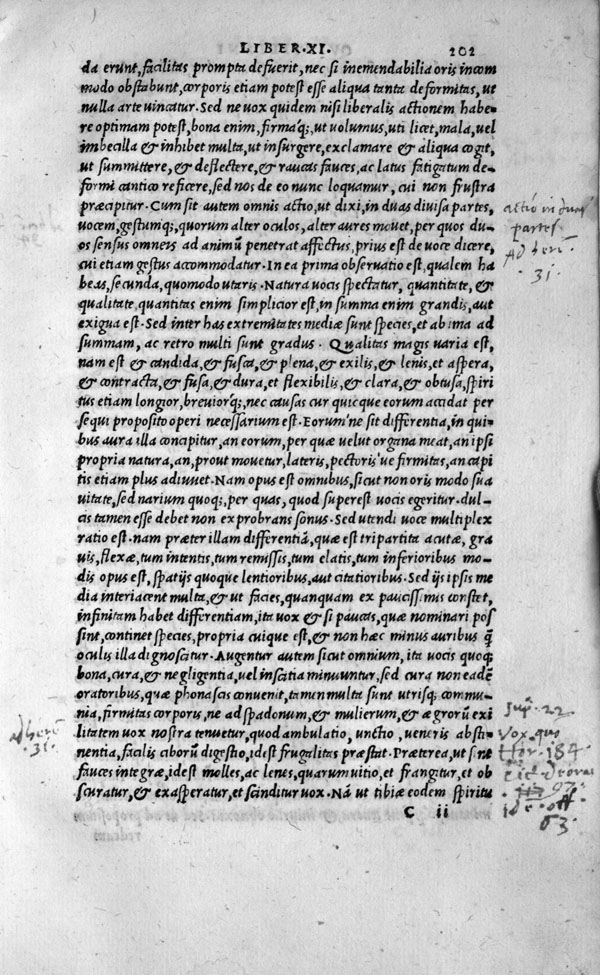 LIBER·XI. 202
da erunt, facilitas prompta defuerit, nec si inemendabilia oris incom
modo obstabunt, corporis etiam potest esse aliqua tanta deformitas, ut
nulla arte vincatur. Sed ne vox quidem nisi liberalis actionem habe-
re optimam potest, bona enim, firmaq;, ut volumus, uti licet, mala, vel
imbecilla & inhibet multa, ut insurgere, exclamare & aliqua cogit,
ut summittere, & deflectere, & raucas fauces, ac latus fatigatum de-
formi cantico reficere, sed nos de eo nunc loquamur, cui non frustra
præcipitur. Cum sit autem omnis actio, ut dixi, in duas divisa partes,
vocem, gestumq;, quorum alter oculos, alter aures movet, per quos du-
os sensus omneis ad animũ penetrat affectus, prius est de voce dicere,
cui etiam gestus accommodatur. In ea prima observatio est, qualem ha
beas, secunda, quomodo utaris. Natura vocis spectatur, quantitate, &
qualitate, quantitas enim simplicior est, in summa enim grandis, aut
exigua est. Sed inter has extremitates mediæ sunt species, et ab ima ad
summam, ac retro multi sunt gradus. Qualitas magis varia est,
nam est & candida, & fusca, & plena, & exilis, & lenis, et aspera,
& contracta, & fusa, & dura, et flexibilis, & clara, & obtusa, spiri
tus etiam longior, breviorq;, nec causas cur quicque eorum accidat per
sequi proposito operi necessarium est. Eorum'ne sit differentia, in qui-
bus aura illa concipitur, an eorum, per quæ velut organa meat, an ipsi
propria natura, an, prout movetur, lateris, pectoris've firmitas, an capi
tis etiam plus adiuvet. Nam opus est omnibus, sicut non oris modo sua
vitate, sed narium quoq;, per quas, quod superest vocis egeritur. dul-
cis tamen esse debet non exprobrans sonus. Sed utendi voce multiplex
ratio est. nam præter illam differentiã, quæ est tripartita acutæ, gra
vis, flexæ, tum intentis, tum remissis, tum elatis, tum inferioribus mo-
dis opus est, spatijs quoque lentioribus, aut citatioribus. Sed ijs ipsis me
dia interiacent multa, & ut facies, quanquam ex paucissimis constet,
infinitam habet differentiam, ita vox & si paucas, quæ nominari pos
sint, continet species, propria cuique est, & non hæc minus auribus q̃
oculis illa dignoscitur. Augentur autem sicut omnium, ita vocis quoq;
bona, cura, & negligentia, vel inscitia minuuntur, sed cura non eadẽ
oratoribus, quæ phonascis convenit, tamen multa sunt utrisq; commu-
nia, firmitas corporis, ne ad spadonum, & mulierum, & ægrorũ exi
litatem vox nostra tenuetur, quod ambulatio, unctio, veneris absti-
nentia, facilis ciborũ digestio, idest frugalitas præstat. Præterea, ut sint
fauces integræ, idest molles, ac lenes, quarum vitio, et frangitur, et ob
scuratur, & exasperatur, et scinditur vox. Nã ut tibiæ eodem spiritu
C ii
actio in duas
partes
Ad heren̄
31.
Ad heren̄
31.
Sup. 22
Vox, quo
Hor. 184
97
off
63.